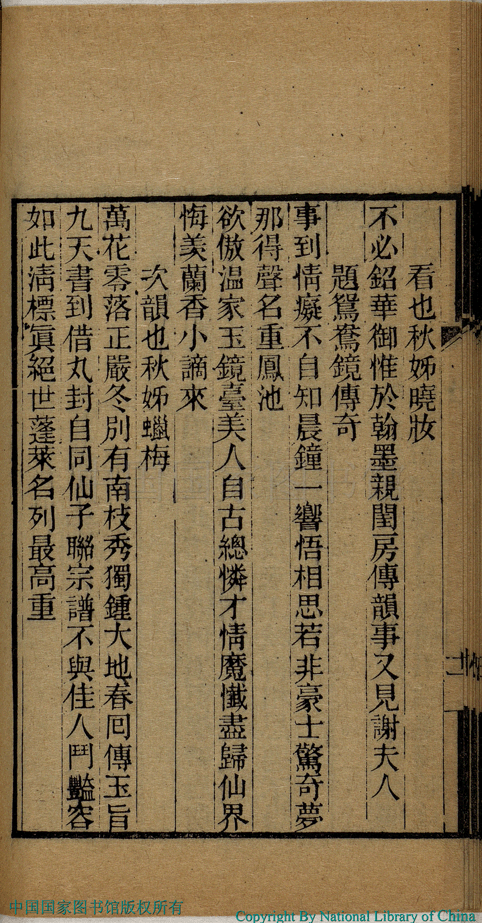 看也秋姊曉妝
不必鉛華御惟於翰墨親閨房傳韻事又見謝夫人
題鴛鴦鏡傳奇
事到情癡不自知晨鐘一響悟相思若非豪士驚奇夢
那得聲名重鳳池
欲傲温家玉鏡臺美人自古總憐才情魔懺盡歸仙界
悔羨蘭香小謫來
次韻也秋姊蠟梅
萬花零落正嚴冬別有南枝秀獨鍾大地春囘傳玉旨
九天書到借丸封自同仙子聯宗譜不與佳人鬥豔容
如此淸標眞絕世蓬萊名列最高重
中国国家图书馆版权所有
Copyright By National Library of China